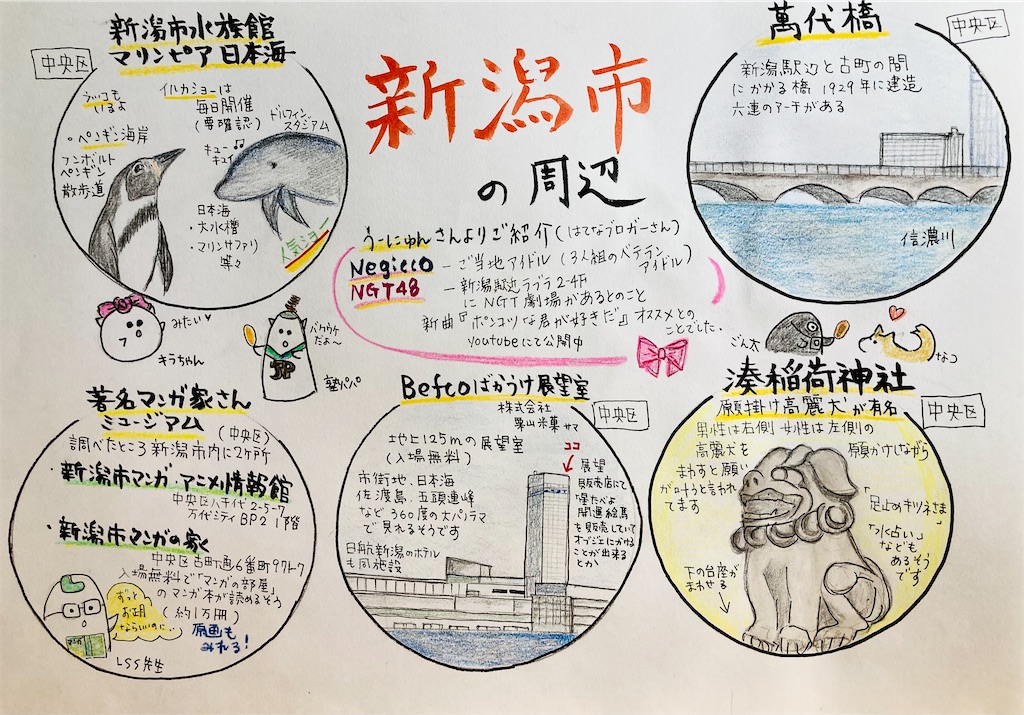 新潟市
の周辺
うーにゅんさんよりご紹介(はてなブロガーさん)
Negicco
－ご当地アイドル(3人組のベテランアイドル)
NGT48
－新潟駅近ラブラ2-4F
にNGT劇場があるとのこと
新曲『ポンコツな君が好きだ』オススメとの
ことでした。
youtubeにて公開中
新潟市水族館
マリンピア日本海
中央区
ラッコも
いるよ
イルカショーは
毎日開催
(要確認)
ドルフィン
スタジアム
・ペンギン海岸
フンボルト
ペンギン
散歩道
キュー♫
キュイ
日本海
・大水槽
・マリンサファリ
等々
人気ショー
萬代橋
中央区
新潟駅辺と古町の間
にかかる橋 1929年に建造
六連のアーチがある
信濃川
みたい♥
キラちゃん
バカウケ
だよ～
JP
塾パパ
ごん太
なコ
著名マンガ家さん
ミュージアム
(中央区)
調べたところ新潟市内に2ヶ所
・新潟市マンガ・アニメ情報館
中央区八千代2-5-7
万代シティBP2 1階
・新潟市マンガの家
中央区古町通6番町971-7
入場無料で「マンガの部屋」
のマンガ本が読めるそう
(約1万冊)
原画も
みれる!
ずっと
お正月
ならいいのに…
LSS先生
Befcoばかうけ展望室
株式会社
栗山米菓サマ
中央区
地上125mの展望室
(入場無料)
市街地、日本海
佐渡島、五頭連峰
など360度の大パノラマ
で見れるそうです
日航新潟のホテル
も同施設
ココ
展望
販売店にて
「星たべよ
開運絵馬
を販売していて
オブジェにかける
ことが出来る
とか
湊稲荷神社
中央区
願掛け高麗犬が有名
男性は右側 女性は左側の
高麗犬を
願かけしながら
まわすと願い
が叶うと言われ
てます
「足止めキツネさま」
「水占い」
なども
あるそう
です
下の台座が
まわせる